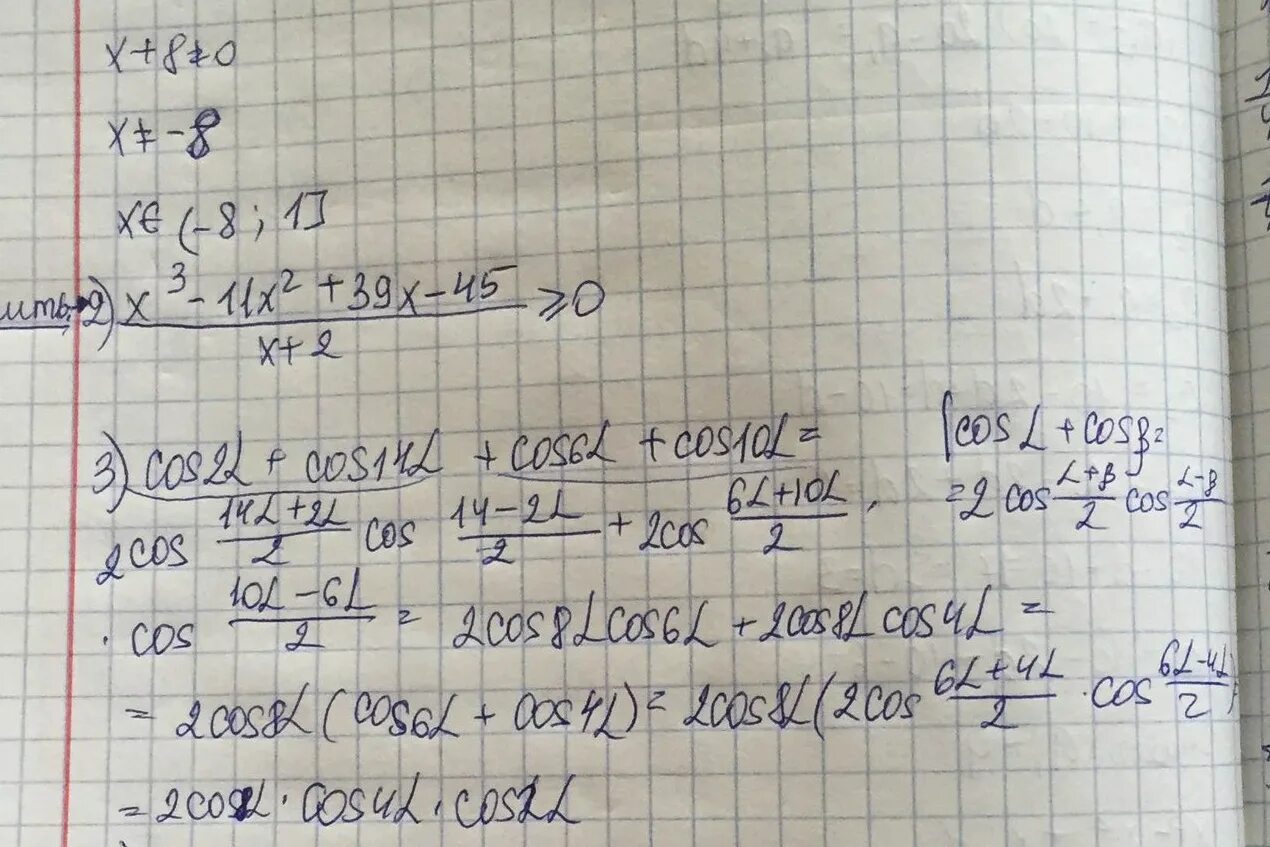 x+8≠0
x ≠ -8
x∈ (-8; 1]
ить 2) (x³ - 11x² + 39x - 45)/(x+2) ≥ 0
3) cos2α + cos14α + cos6α + cos10α = |cos α + cosβ =
2cos (14α+2α)/2 cos (14-2α)/2 + 2cos (6α+10α)/2 · = 2 cos (α+β)/2 cos (α-β)/2
· cos (10α-6α)/2 = 2cos8α cos6α + 2cos8α cos4α =
= 2cos8α (cos6α + cos4α) = 2cos8α (2cos (6α+4α)/2 · cos (6α-4α)/2)
= 2cos α · cos4α · cos2α